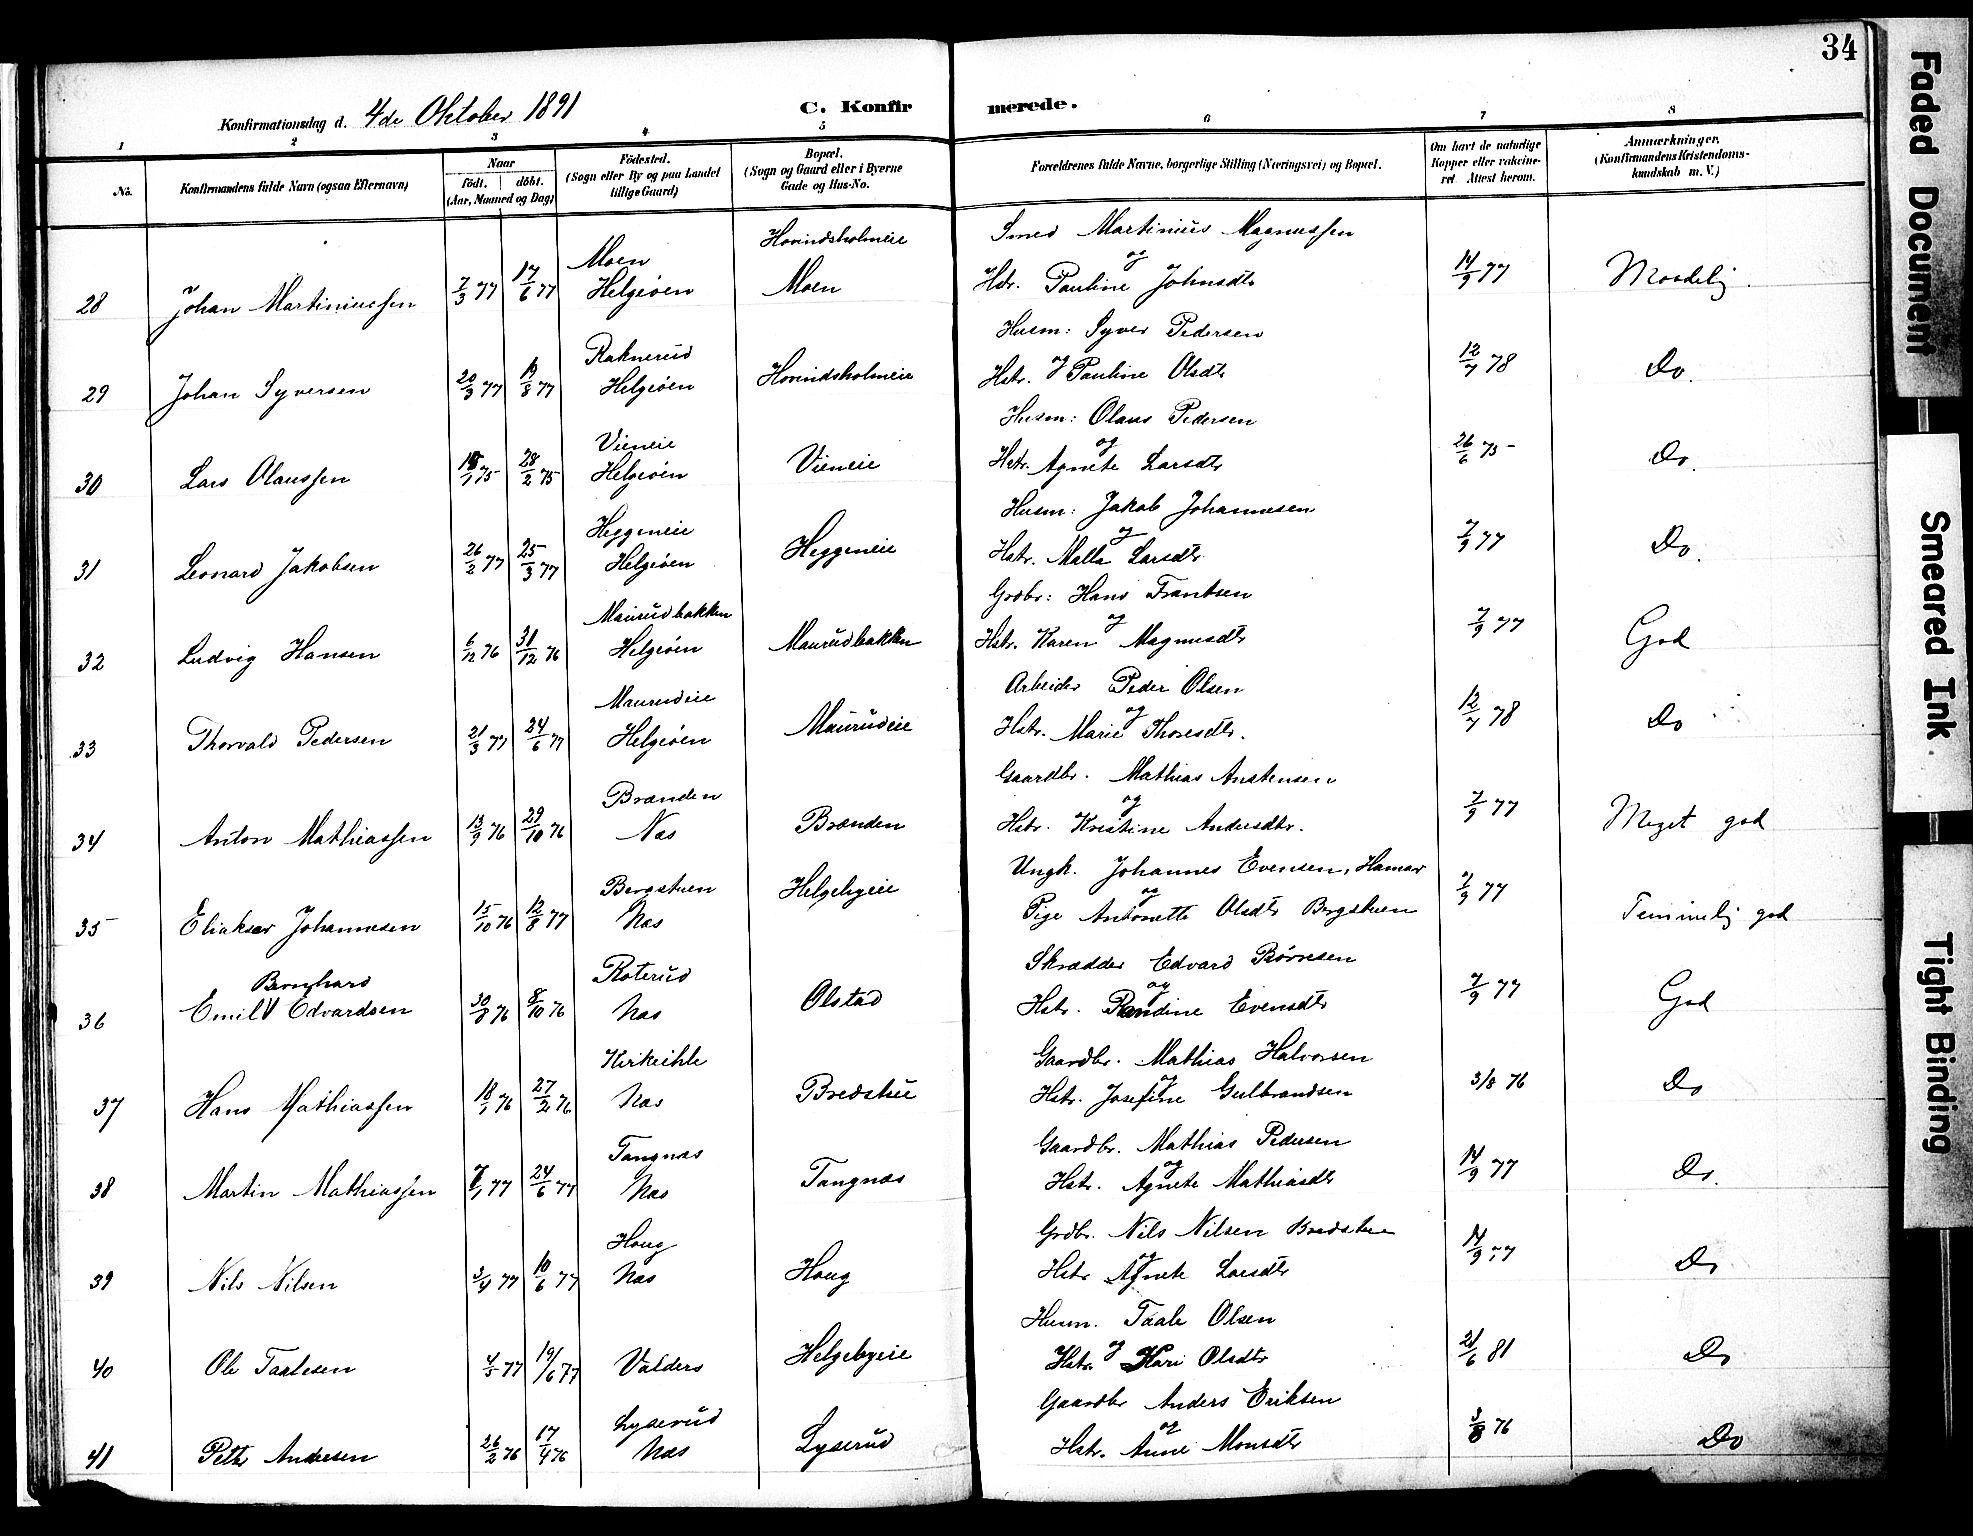 34
Konfirmationsdag d. 4de Oktober 1891
C. Konfirmerede.
1 2 3 4 5 6 7 8
No. Konfirmandens fulde Navn (ogsaa Efternavn) Naar födt. döbt. (Aar, Maaned og Dag) Födested. (Sogn eller By og paa Landet tillige Gaard) Bopæl. (Sogn og Gaard eller i Byerne Gade og Hus-No. Forældrenes fulde Navne, borgerlige Stilling (Næringsvei) og Bopæl. Om havt de naturlige Kopper eller vakcineret. Attest herom. Anmærkninger. (Konfirmandens Kristendomskundskab m. V.)
Moen Hovindsholmeie Smed Martinius Magnussen
28 Johan Martiniussen 7/3 77 17/6 77 Helgeøen Moen og Hstr. Pauline Johnsdtr 14/9 77 Maadelig.
Raknerud Husm: Syver Pedersen
29 Johan Syversen 20/3 77 /8 77 Helgeøen Hovindsholmeie og Hstr. Pauline Olsdtr 12/7 78 Do.
Vieneie Husm: Olaus Pedersen
30 Lars Olaussen 15/1 75 28/2 75 Helgeøen Vieneie og Hstr. Agnete Larsdtr 26/6 75 Do.
Heggeneie Husm: Jakob Johannesen
31 Leonard Jakobsen 26/2 77 25/3 77 Helgeøen Heggeneie og Hstr. Malla Larsdtr 7/9 77 Do.
Maurudbakken Grdbr: Hans Frantsen
32 Ludvig Hansen 6/12 76 31/12 76 Helgeøen Maurudbakken og Hstr. Karen Magnusdtr 7/9 77 God
Maurudeie Arbeider Peder Olsen
33 Thorvald Pedersen 21/3 77 24/6 77 Helgeøen Maurudeie og Hstr. Marie Thoresdtr. 12/7 78 Do
Brænden Gaardbr. Mathias Anstensen
34 Anton Mathiassen 13/9 76 29/10 76 Næs Brænden og Hstr. Kristine Andersdtr. 7/9 77 Meget god
Bergstuen Ungk. Johannes Evensen, Hamar
35 Eliakser Johannesen 15/10 76 12/8 77 Næs Helgebyeie og Pige Antonette Olsdtr Bergstuen 7/9 77 Temmelig god
Bernhard Roterud Skrædder Edvard Børresen
36 Emil Edvardsen 30/8 76 8/10 76 Næs Olstad og Hstr. Randine Evensdtr 7/9 77 God
Kirkeihle Gaardbr. Mathias Halvorsen
37 Hans Mathiassen 18/1 76 27/2 76 Næs Bredstue og Hstr. Josefine Gulbrandsen 3/8 76 Do
Tangnæs Gaardbr. Mathias Pedersen
38 Martin Mathiassen /1 77 24/6 77 Næs Tangnæs og Hstr. Agnete Mathiasdtr 14/9 77 Do.
Houg Grdbr. Nils Nilsen Bredstuen
39 Nils Nilsen 3/4 77 10/6 77 Næs Houg og Hstr Agnete Larsdtr 14/9 77 Do
Husm. Taale Olsen
40 Ole Taalesen 4/5 77 19/6 77 Valders Helgebyeie og Hstr. Kari Olsdtr 21/6 81 Do
Lyserud Gaardbr Anders Eriksen
41 Petter Andersen 26/2 76 17/4 76 Næs Lyserud og Hstr. Anne Monsdtr 3/8 76 Do
Faded Document
Smeared Ink
Tight Binding